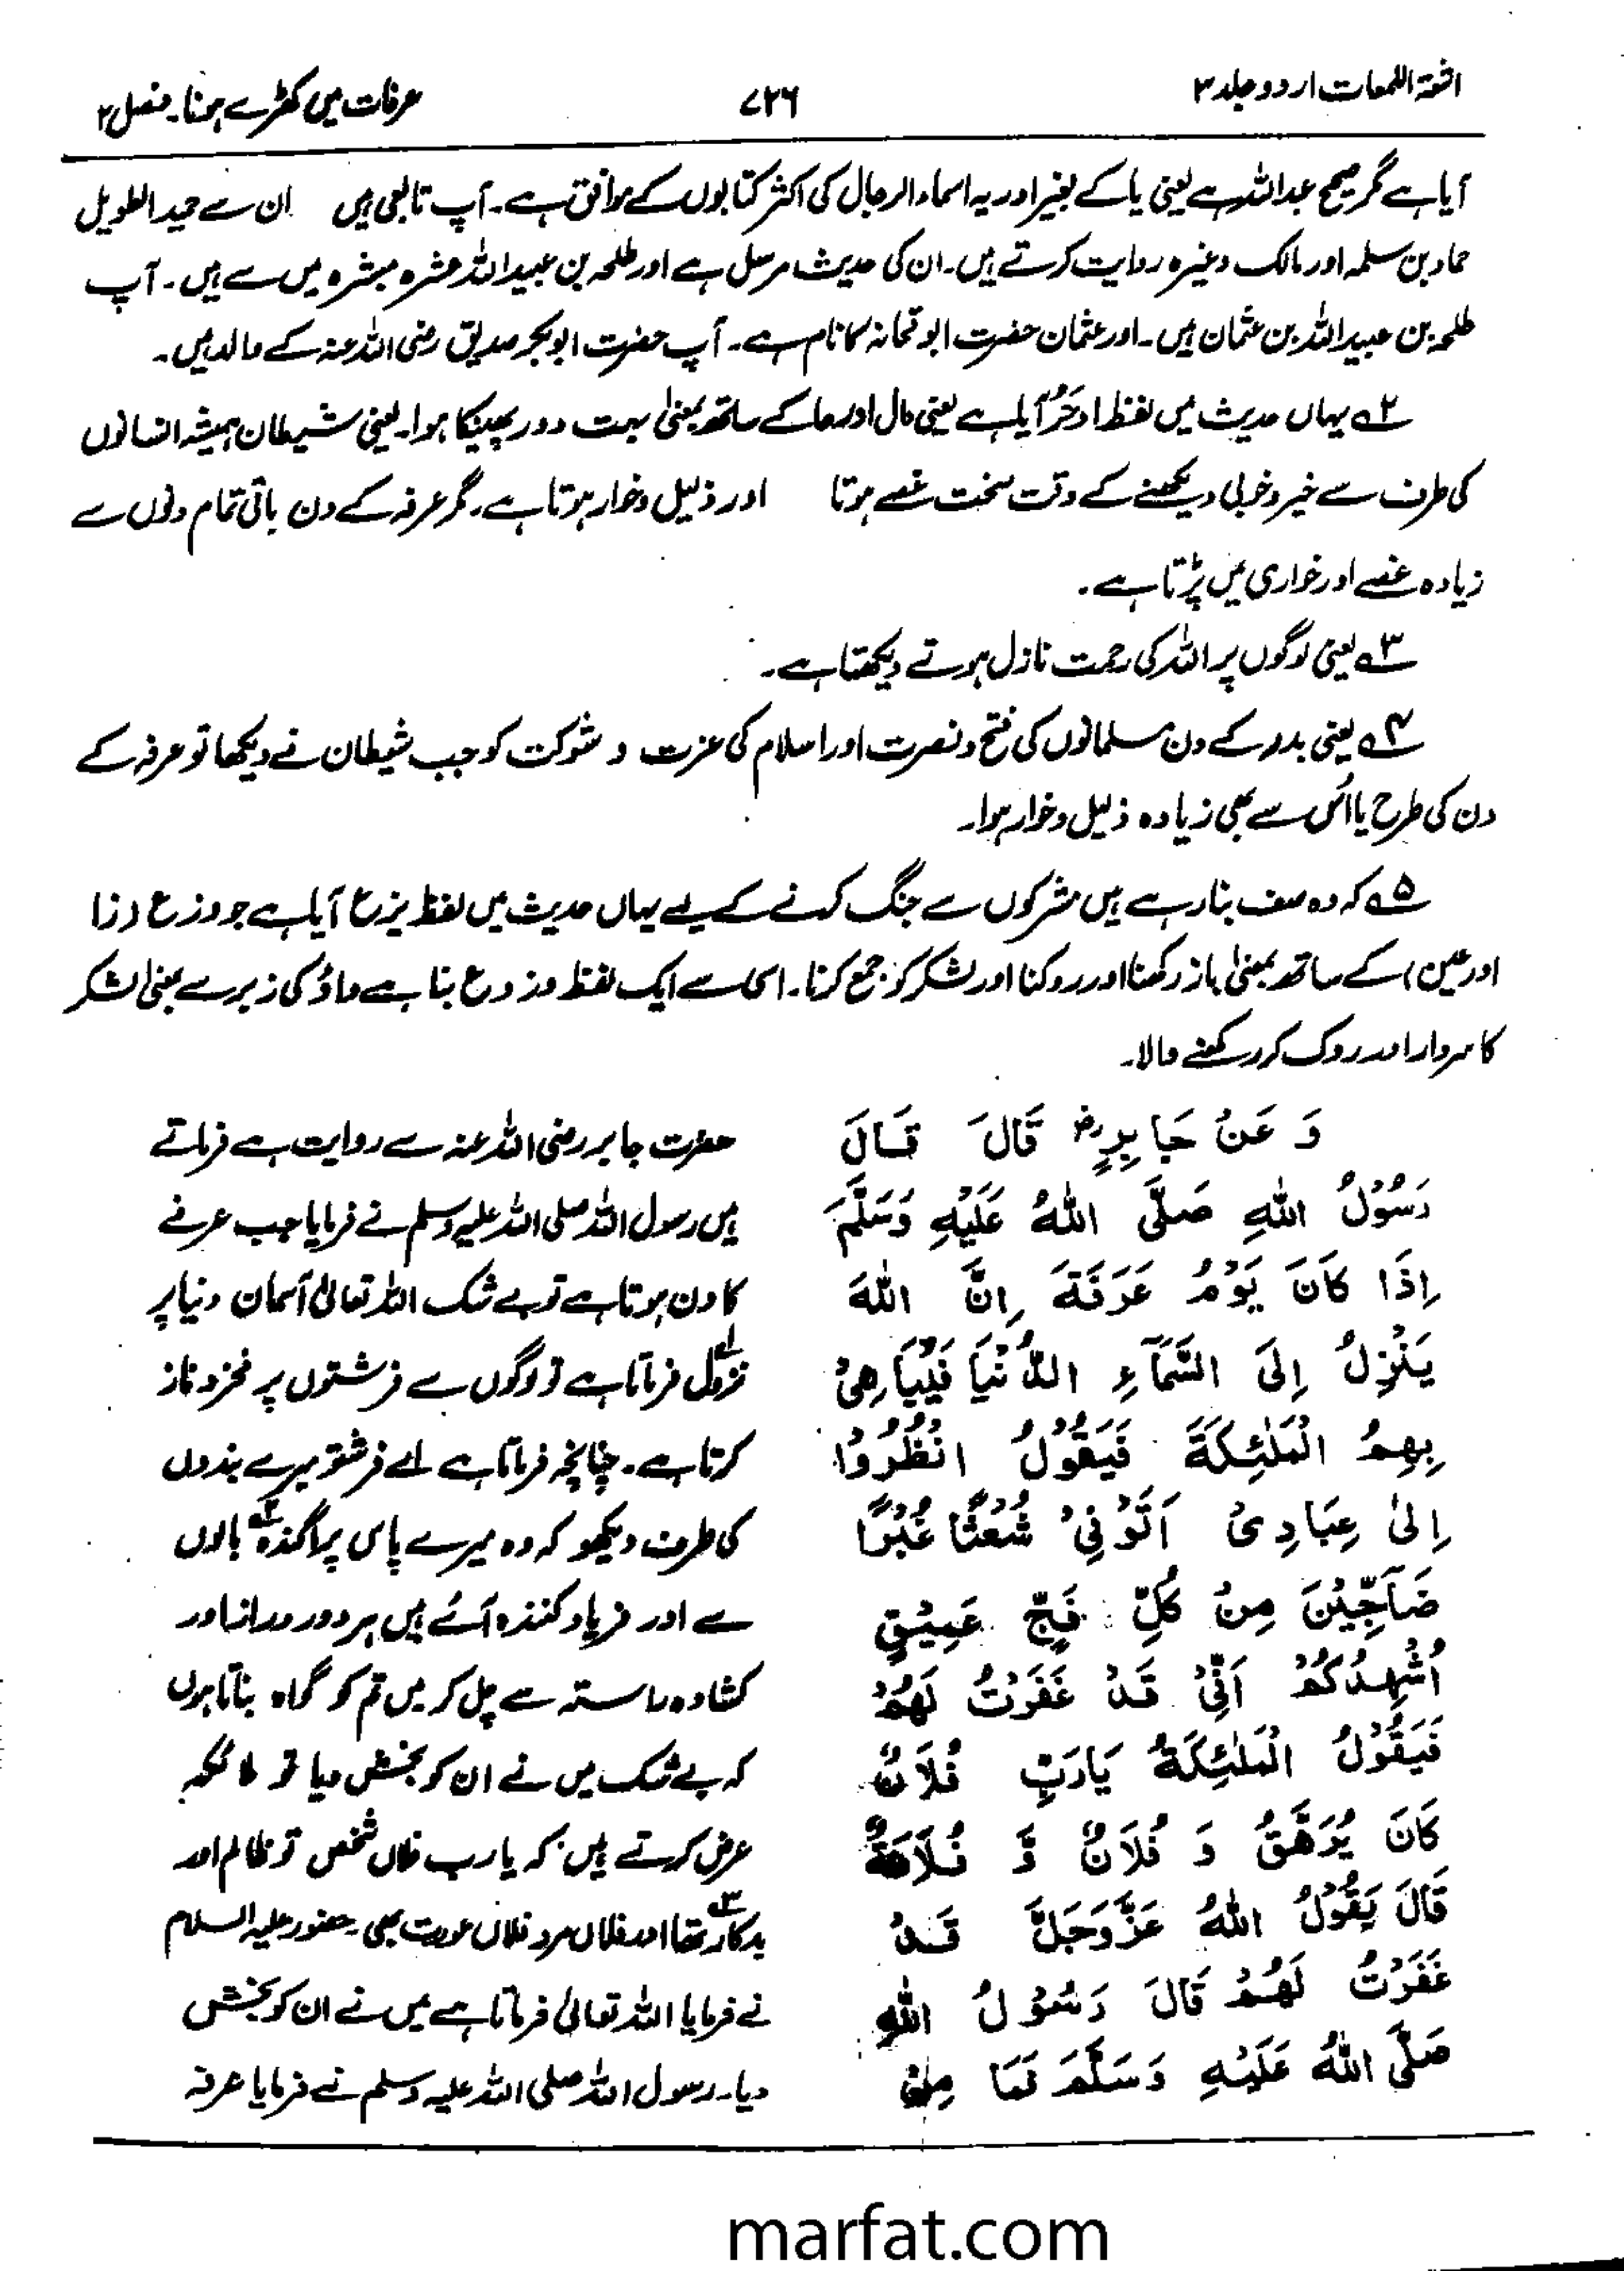 اشعۃ اللمعات اردو جلد ۳
۷۲۶
عرفات میں کھڑے ہونا۔ فصل ۲
آیا ہے مگر صحیح عبداللہ ہے یعنی یا کے بغیر اور یہ اسماء الرجال کی اکثر کتابوں کے موافق ہے۔ آپ تابعی ہیں ان سے حمید الطویل
حماد بن سلمہ اور مالک وغیرہ روایت کرتے ہیں۔ ان کی حدیث مرسل ہے اور طلحہ بن عبیداللہ عشرہ مبشرہ میں سے ہیں۔ آپ
طلحہ بن عبیداللہ بن عثمان ہیں۔ اور عثمان حضرت ابو قحافہ کا نام ہے۔ آپ حضرت ابوبکر صدیق رضی اللہ عنہ کے والد ہیں۔
۲ یہاں حدیث میں لفظ ادحر آیا ہے یعنی دال اور حا کے ساتھ بمعنیٰ بہت دور پھینکا ہوا۔ یعنی شیطان ہمیشہ انسانوں
کی طرف سے خیر و خوبی دیکھنے کے وقت سخت غصے ہوتا اور ذلیل و خوار ہوتا ہے۔ مگر عرفہ کے دن باقی تمام دنوں سے
زیادہ غصے اور خواری میں پڑتا ہے۔
۳ یعنی لوگوں پر اللہ کی رحمت نازل ہوتے دیکھتا ہے۔
۴ یعنی بدر کے دن مسلمانوں کی فتح و نصرت اور اسلام کی عزت و شوکت کو جب شیطان نے دیکھا تو عرفہ کے
دن کی طرح یا اس سے بھی زیادہ ذلیل و خوار ہوا۔
۵ کہ وہ صف بنا رہے ہیں مشرکوں سے جنگ کرنے کے لیے یہاں حدیث میں لفظ یزع آیا ہے جو وزع (زا
اور عین) کے ساتھ بمعنیٰ باز رکھنا اور روکنا اور لشکر کو جمع کرنا۔ اسی سے ایک لفظ وزوع بنا ہے واؤ کی زبر سے بمعنیٰ لشکر
کا سردار اور روک کر رکھنے والا۔
وَ عَنْ جَابِرٍ رض قَالَ قَالَ
رَسُوْلُ اللهِ صَلَّى اللهُ عَلَيْهِ وَسَلَّمَ
اِذَا كَانَ يَوْمُ عَرَفَةَ اِنَّ اللهَ
يَنْزِلُ اِلَى السَّمَآءِ الدُّنْيَا فَيُبَاهِىْ
بِهِمُ الْمَلٰئِكَةَ فَيَقُوْلُ انْظُرُوْا
اِلىٰ عِبَادِىْ اَتَوْنِىْ شُعْثًا غُبْرًا
ضَآجِّيْنَ مِنْ كُلِّ فَجٍّ عَمِيْقٍ
اُشْهِدُكُمْ اَنِّىْ قَدْ غَفَرْتُ لَهُمْ
فَيَقُوْلُ الْمَلٰئِكَةُ يَارَبِّ فُلَانٌ
كَانَ يُرَهَّقُ وَ فُلَانٌ وَّ فُلَانَةٌ
قَالَ يَقُوْلُ اللهُ عَزَّوَجَلَّ قَدْ
غَفَرْتُ لَهُمْ قَالَ رَسُوْلُ اللهِ
صَلَّى اللهُ عَلَيْهِ وَسَلَّمَ فَمَا مِنْ
حضرت جابر رضی اللہ عنہ سے روایت ہے فرماتے
ہیں رسول اللہ صلی اللہ علیہ وسلم نے فرمایا جب عرفے
کا دن ہوتا ہے تو بے شک اللہ تعالیٰ آسمان دنیا پر
نزول ۱ فرماتا ہے تو لوگوں سے فرشتوں پر فخر و ناز
کرتا ہے۔ چنانچہ فرماتا ہے اے فرشتو میرے بندوں
کی طرف دیکھو کہ وہ میرے پاس پراگندہ ۲ بالوں
سے اور فریاد کنندہ آئے ہیں ہر دور دراز اور
کشادہ راستہ سے چل کر میں تم کو گواہ بناتا ہوں
کہ بے شک میں نے ان کو بخش دیا تو ملائکہ
عرض کرتے ہیں کہ یا رب فلاں شخص تو ظالم اور
بدکار ۳ تھا اور فلاں مرد فلاں عورت بھی۔ حضور علیہ السلام
نے فرمایا اللہ تعالیٰ فرماتا ہے میں نے ان کو بخش
دیا۔ رسول اللہ صلی اللہ علیہ وسلم نے فرمایا عرفہ
marfat.com